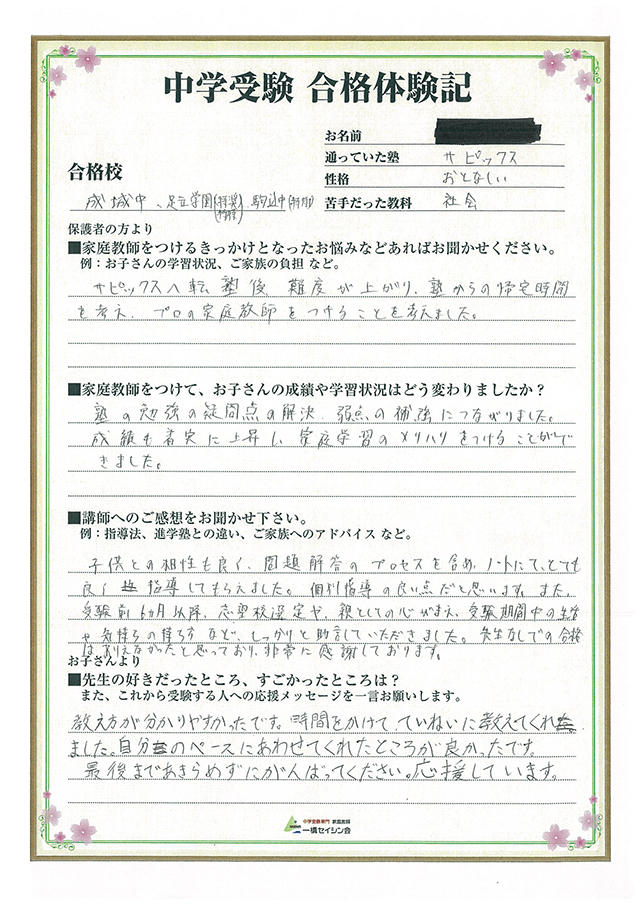 中学受験 合格体験記
お名前
通っていた塾 サピックス
合格校
性格 おとなしい
成城中、足立学園(特奨 特待)、駒込中(特別)
苦手だった教科 社会
保護者の方より
■家庭教師をつけるきっかけとなったお悩みなどあればお聞かせください。
例：お子さんの学習状況、ご家族の負担 など。
サピックスへ転塾後、難度が上がり、塾からの帰宅時間
を考え、プロの家庭教師をつけることを考えました。
■家庭教師をつけて、お子さんの成績や学習状況はどう変わりましたか？
塾の勉強の疑問点の解決、弱点の補強につながりました。
成績も着実に上昇し、家庭学習のメリハリをつけることがで
きました。
■講師へのご感想をお聞かせ下さい。
例：指導法、進学塾との違い、ご家族へのアドバイス など。
子供との相性も良く、問題解答のプロセスを含め、ノートにて、とても
良く指導してもらえました。個別指導の良い点だと思います。また、
受験前6カ月以降、志望校選定や、親としての心がまえ、受験期間中の生活
や気持ちの持ち方など、しっかりと助言していただきました。先生なしでの合格
はありえなかったと思っており、非常に感謝しております。
お子さんより
■先生の好きだったところ、すごかったところは？
また、これから受験する人への応援メッセージを一言お願いします。
教え方が分かりやすかったです。時間をかけて、ていねいに教えてくれ
ました。自分のペースにあわせてくれたところが良かったです。
最後まであきらめずにがんばってください。応援しています。
中学受験専門 家庭教師
一橋セイシン会